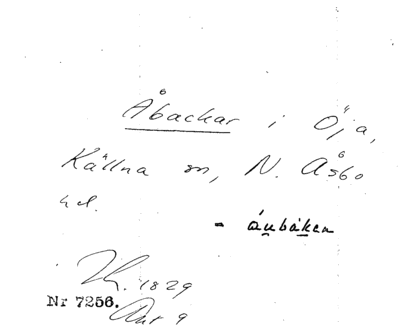 Åbackar i Öja,
Källna sn, N. Åsbo
hd.
- áubáken
1829
Nr 7256.